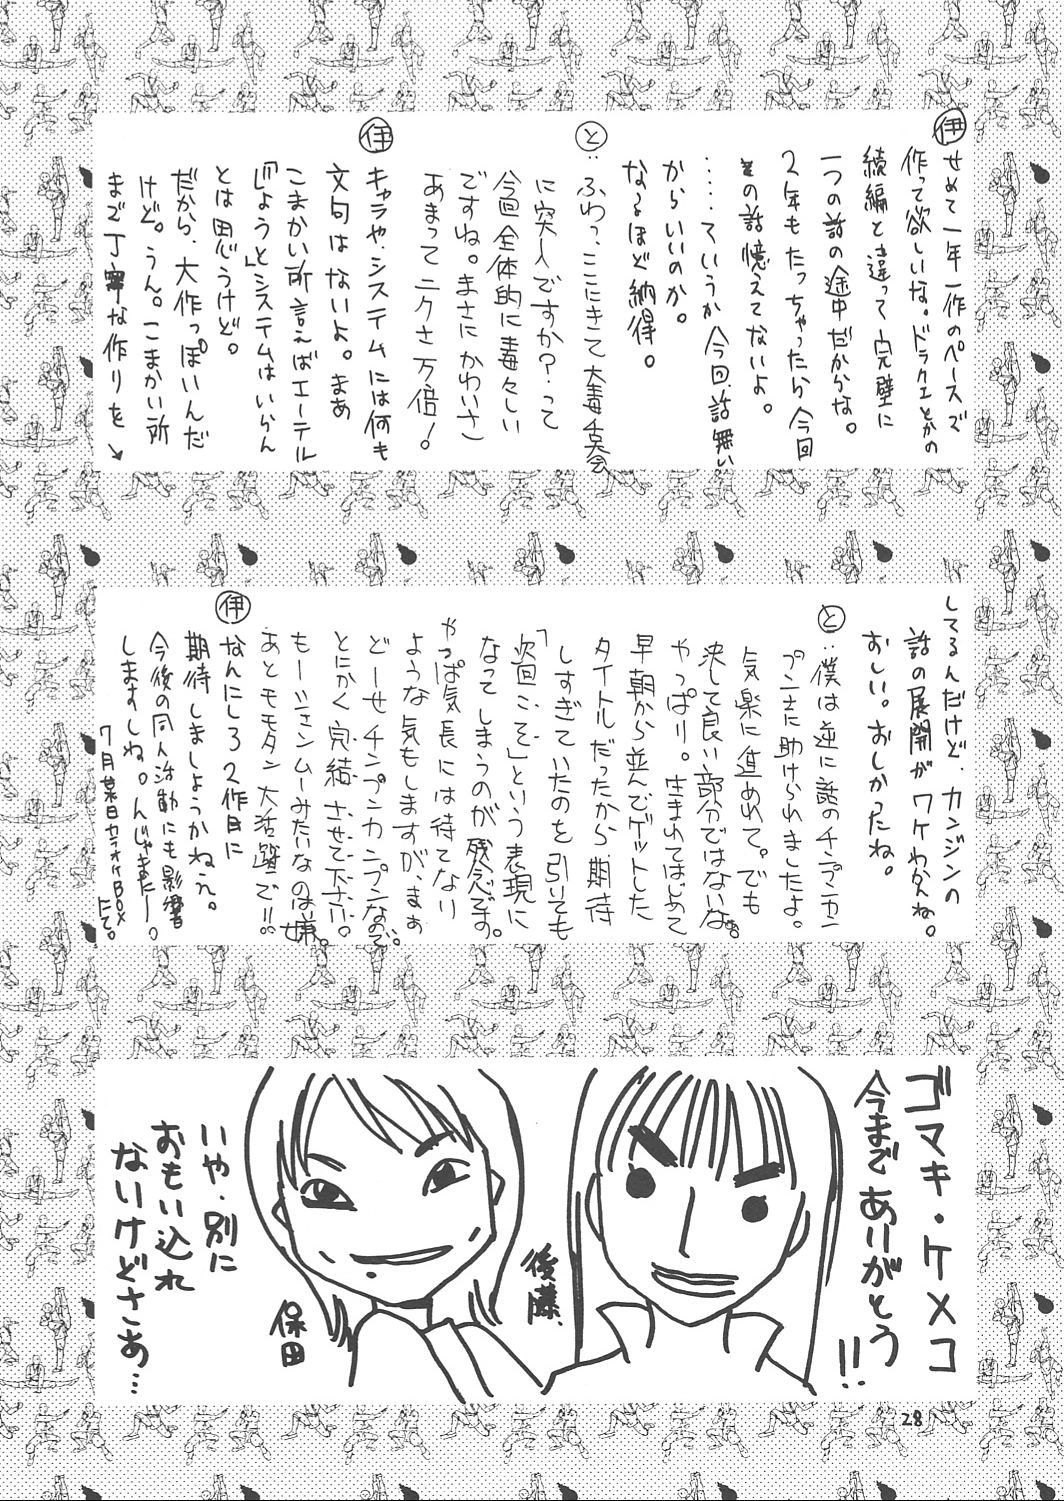 伊
せめて一年一作のペースで
作って欲しいな。ドラクエとかの
続編と違って完璧に
一つの話の途中だからな。
2年もたっちゃったら今回
の話憶えてないよ。
‥‥ていうか今回、話無い
からいいのか。
なるほど納得。
と
:ふわっ、ここにきて大毒舌大会
に突入ですか?って
今回全体的に毒々しい
ですね。まさにかわいさ
あまってニクさ万倍!
伊
キャラや、システムには何も
文句はないよ。まあ
こまかい所言えばエーテル
「じょうとシステムはいらん」
とは思うけど。
だから、大作っぽいんだ
けど。うん。こまかい所
まで丁寧な作りを↘
してるんだけど、カンジンの
話の展開がワケわかんね。
おしい。おしかったね。
と
:僕は逆に話のチンプンカン
プンさに助けられましたよ。
気楽に進めれて。でも
決して良い部分ではないなぁ。
やっぱり。生まれてはじめて
早朝から並んでゲットした
タイトルだったから期待
しすぎていたのを引いても
「次回こそ」という表現に
なってしまうのが残念です。
やっぱ気長には待てなり
ような気もしますが、まぁ
どーせチンプンカンプンなので。
とにかく完結させて下さい。
もーシェンムーみたいなのは嫌。
あとモモタン大活躍で!!
伊
なんにしろ2作目に
期待しましょうかねぇ。
今後の同人活動にも影響
しますしね。んじゃまたー。
7月某日カラオケBOX
にて。
ゴマキ・ケメコ
今まで ありがとう!!
後藤
保田
いや、別に
おもい込れ
ないけどさあ…
28